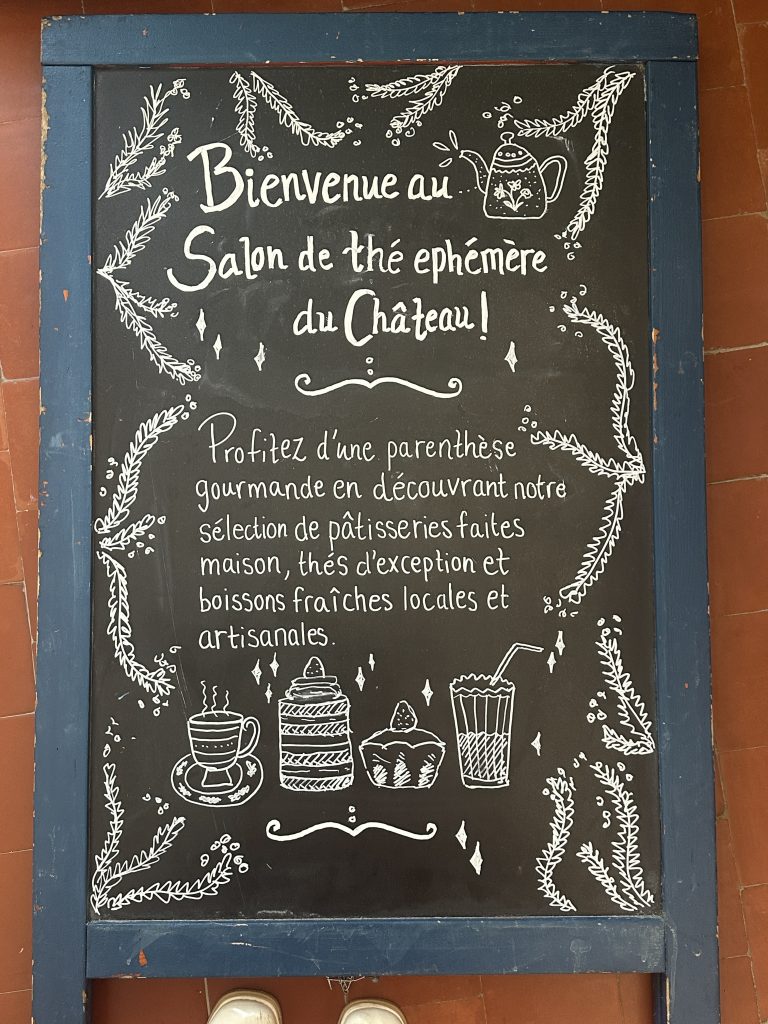 Bienvenue au
Salon de thé ephémère
du Château !
Profitez d'une parenthèse
gourmande en découvrant notre
sélection de pâtisseries faites
maison, thés d'exception et
boissons fraîches locales et
artisanales.